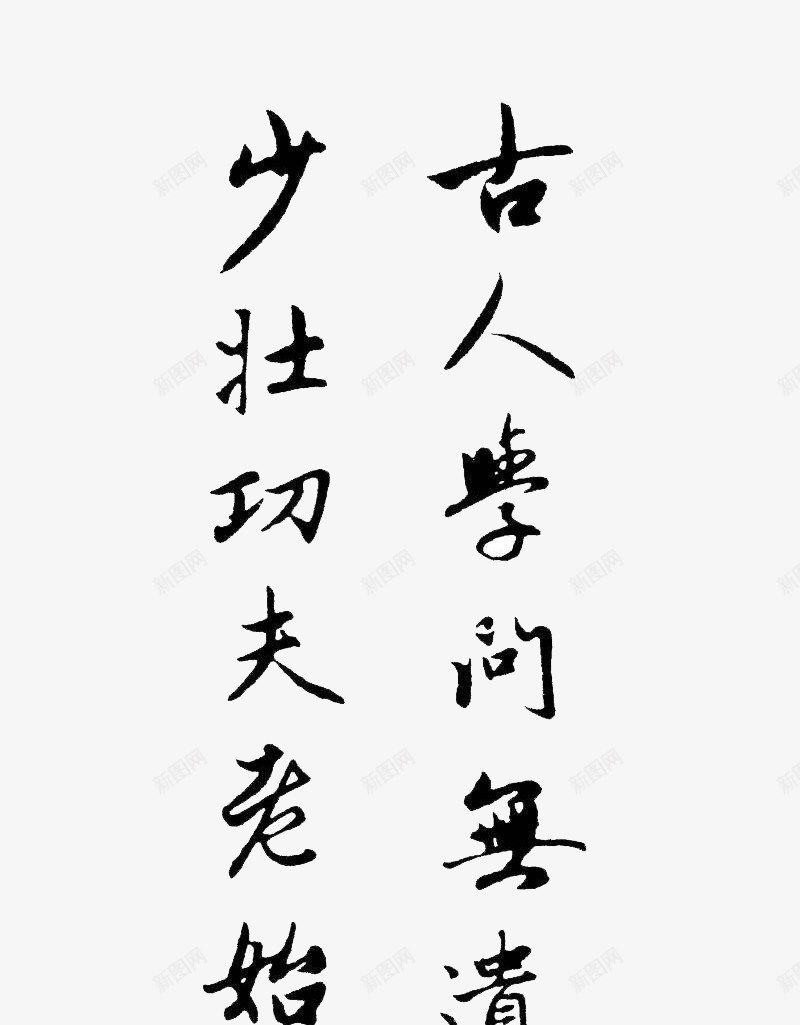 古人學問無遺
少壯功夫老始
新图网